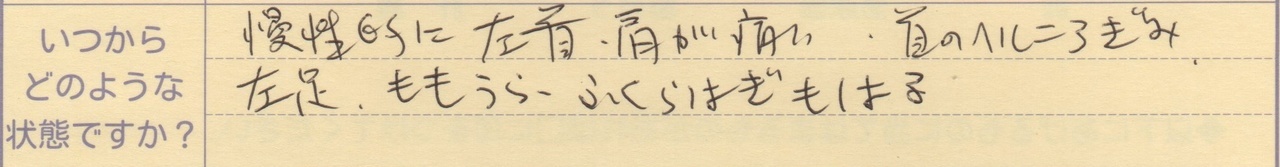 いつから
どのような
状態ですか？
慢性的に左首、肩が痛い、首のヘルニアぎみ、
左足、ももうら、ふくらはぎもはる